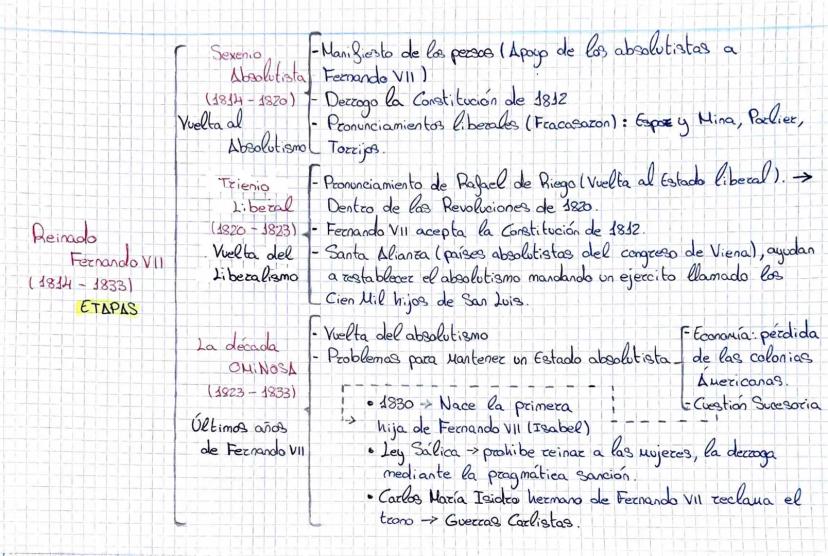 Reinado
Fernando VII
(1814 - 1833)
ETAPAS
Sexenio
Absolutista
(1814 - 1820)
Vuelta al
Absolutismo
- Manifiesto de los persas (Apoyo de los absolutistas a
Fernando VII)
- Derrogo la Constitución de 1812
- Pronunciamientos liberales (Fracasaron): Espoz y Mina, Porlier,
Torrijos.
Trienio
Liberal
(1820 - 1823)
Vuelta del
Liberalismo
- Pronunciamiento de Rafael de Riego (Vuelta al Estado liberal). →
Dentro de las Revoluciones de 1820.
- Fernando VII acepta la Constitución de 1812.
- Santa Alianza (países absolutistas del congreso de Viena), ayudan
a restablecer el absolutismo mandando un ejercito llamado los
Cien Mil hijos de San Luis.
La década
OMINOSA
(1823 - 1833)
Últimos años
de Fernando VII
- Vuelta del absolutismo
- Problemas para mantener un Estado absolutista
- Economía: pérdida
de las colonias
Américanas.
- Cuestión Sucesoria
• 1830 → Nace la primera
hija de Fernando VII (Isabel)
• Ley Sálica → prohibe reinar a las mujeres, la derroga
mediante la pragmática sanción.
• Carlos María Isidro hermano de Fernando VII reclama el
trono → Guerras Carlistas.